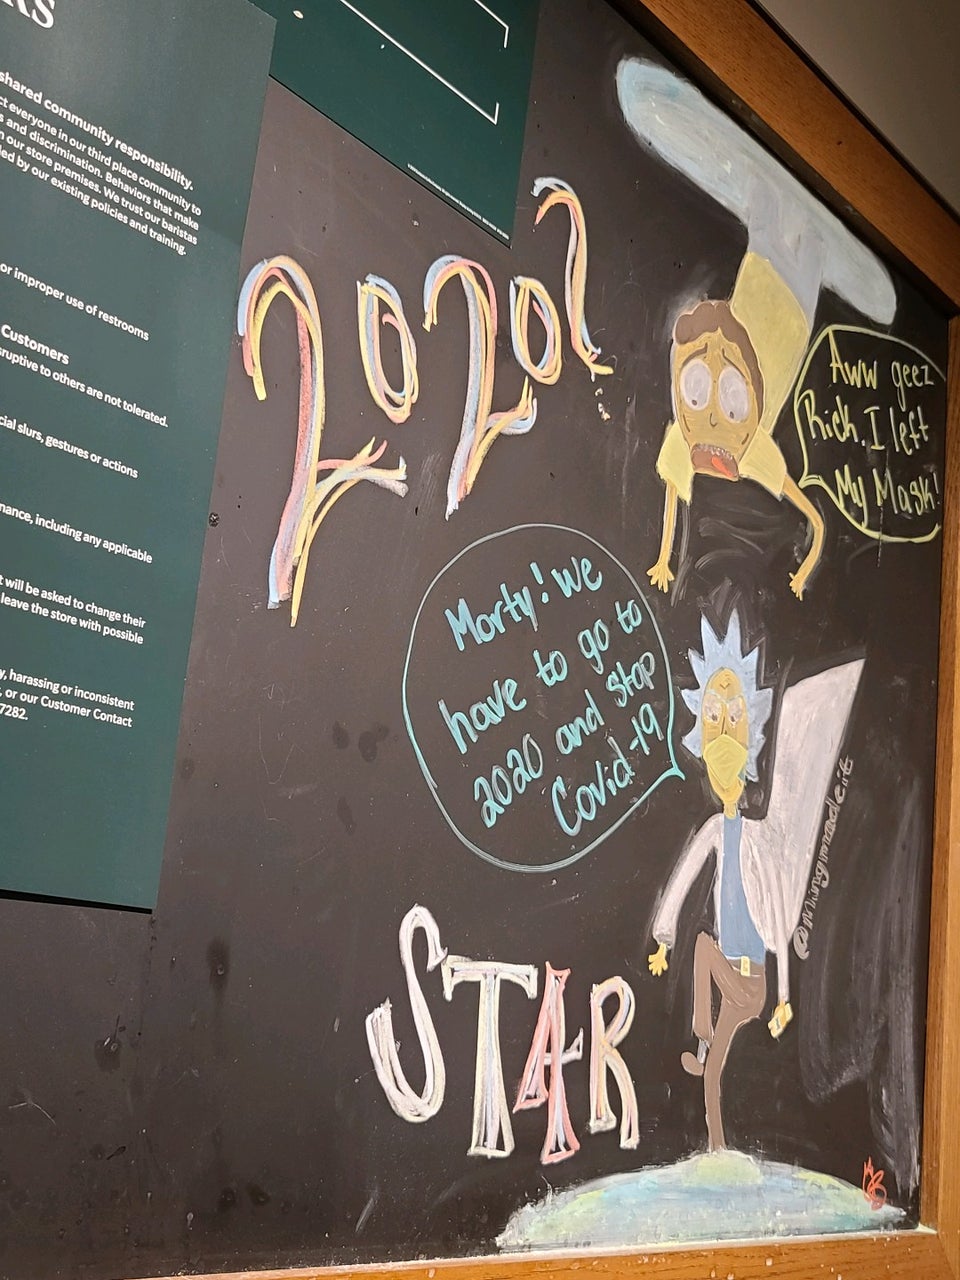 RS
shared community responsibility.
ct everyone in our third place community to
s and discrimination. Behaviors that make
n our store premises. We trust our baristas
ded by our existing policies and training.
or improper use of restrooms
Customers
sruptive to others are not tolerated.
cial slurs, gestures or actions
nance, including any applicable
t will be asked to change their
leave the store with possible
y, harassing or inconsistent
, or our Customer Contact
7282.
2020?
Aww geez
Rick. I left
My Mask!
Morty! We
have to go to
2020 and stop
Covid-19
@mingmadeit
STAR